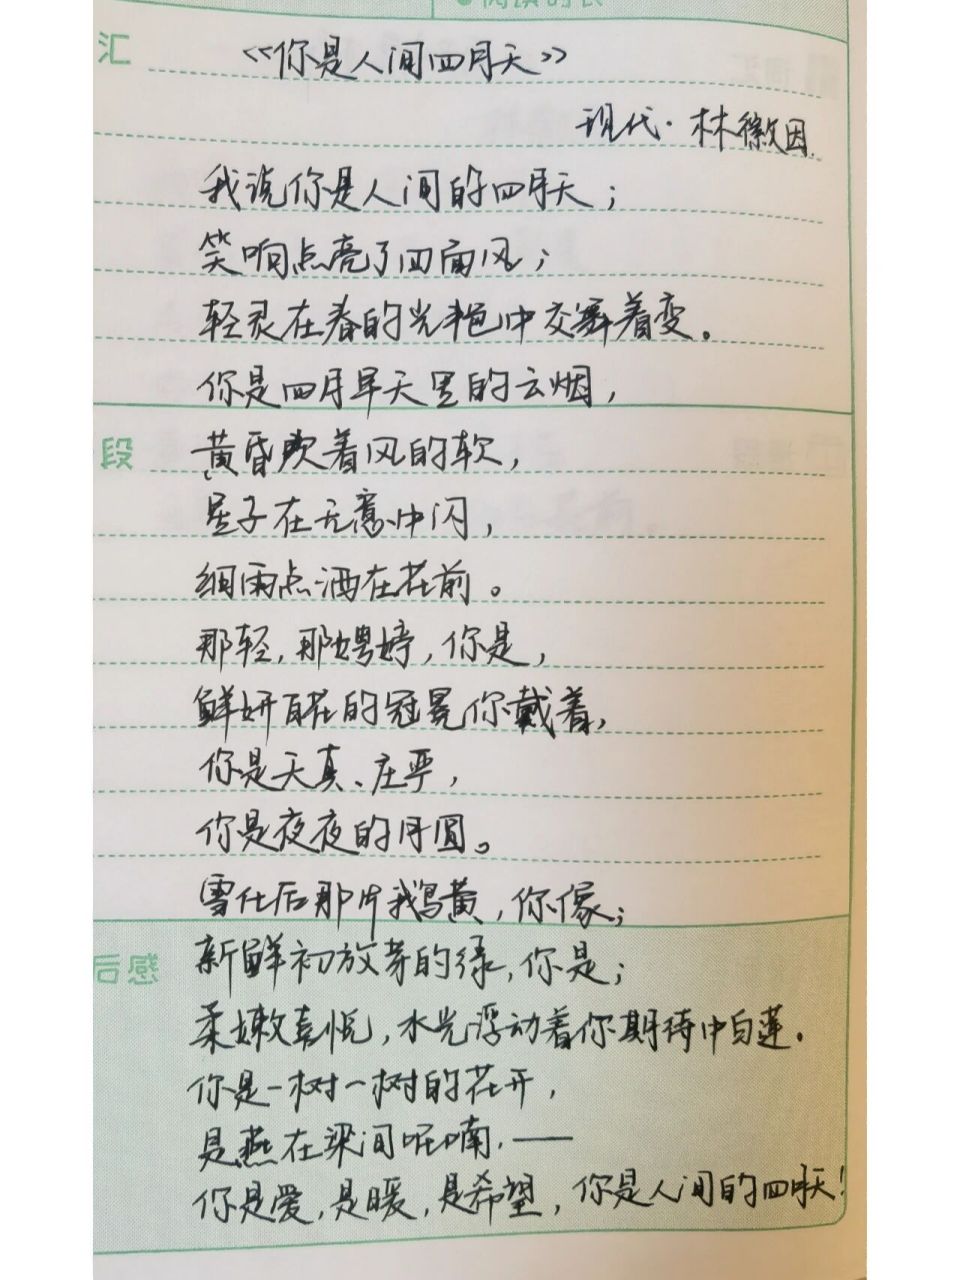 汇
《你是人间四月天》
现代·林徽因
我说你是人间的四月天；
笑响点亮了四面风；
轻灵在春的光艳中交舞着变。
你是四月早天里的云烟，
段
黄昏吹着风的软，
星子在无意中闪，
细雨点洒在花前。
那轻，那娉婷，你是，
鲜妍百花的冠冕你戴着，
你是天真、庄严，
你是夜夜的月圆。
雪化后那片鹅黄，你像；
新鲜初放芽的绿，你是；
后感
柔嫩喜悦，水光浮动着你期待中白莲。
你是一树一树的花开，
是燕在梁间呢喃，——
你是爱，是暖，是希望，你是人间的四月天！